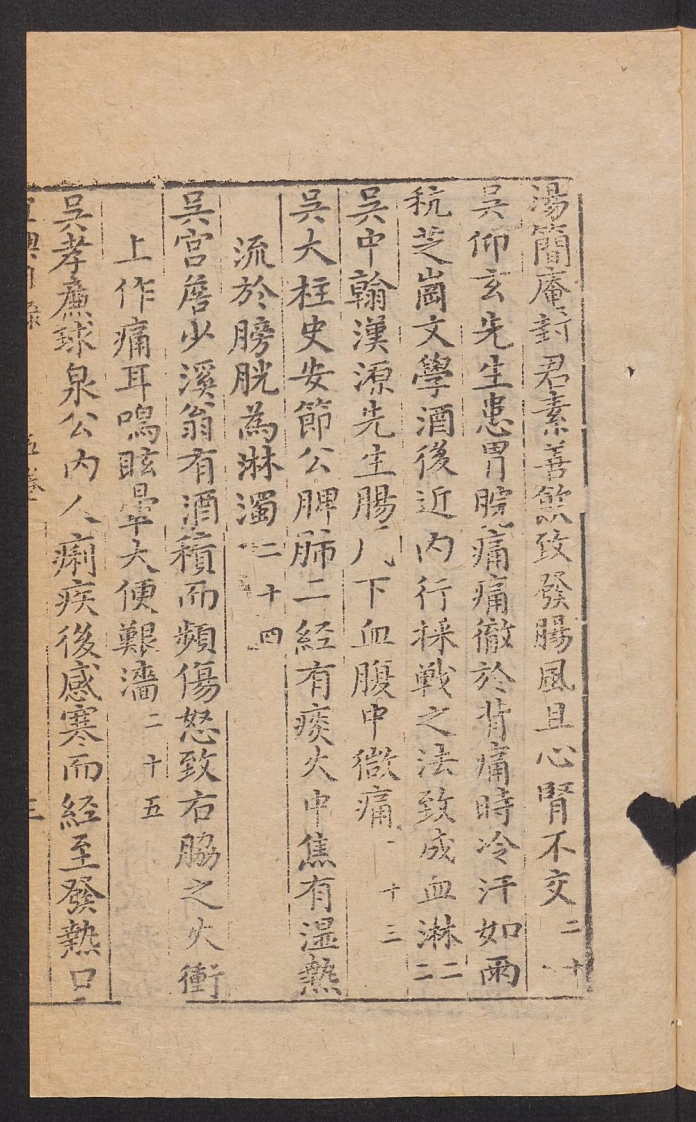 湯簡庵封君素善飲致發腸風且心腎不交二十一
吳仰玄先生患胃脘痛痛徹於背痛時冷汗如雨
秔芝崗文學酒後近內行採戰之法致成血淋二二
吳中翰漢源先生腸風下血腹中微痛十三
吳大柱史安節公脾肺二経有痰火中焦有溫熱
流於膀胱為淋濁二十四
吳宮詹少溪翁有酒積而頻傷怒致右脇之火衝
上作痛耳鳴眩暈大便艱濇二十五
吳孝廉球泉公內人痢疾後感寒而経至發熱口
五卷 三